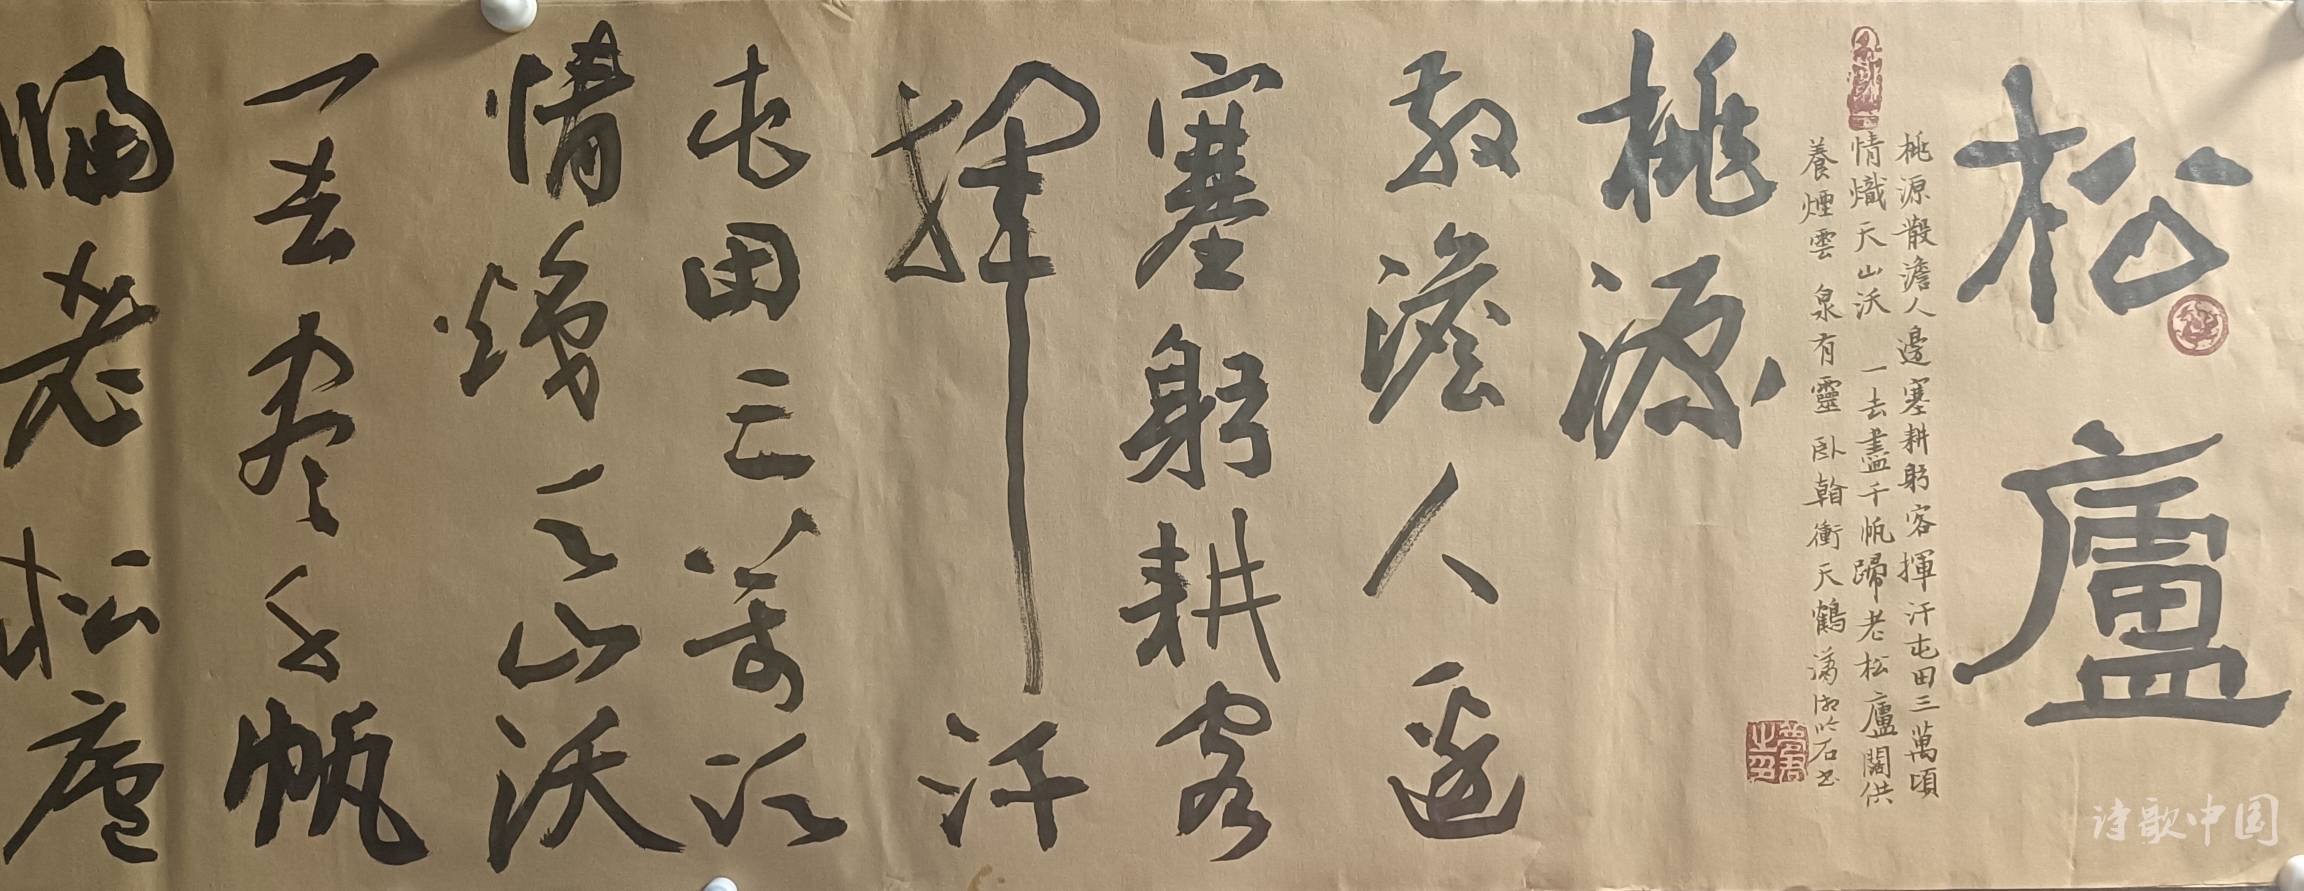 松廬
桃源散澹人邊塞耕躬客揮汗屯田三萬頃
情熾天山沃 一去盡千帆歸老松廬闊供
養煙雲 泉有靈 臥翰衝天鶴 瀟湘石书
桃源
散澹人邊
塞躬耕客
揮汗
屯田三萬頃
情熾天山沃
一去尽千帆
歸老松廬
诗歌中国